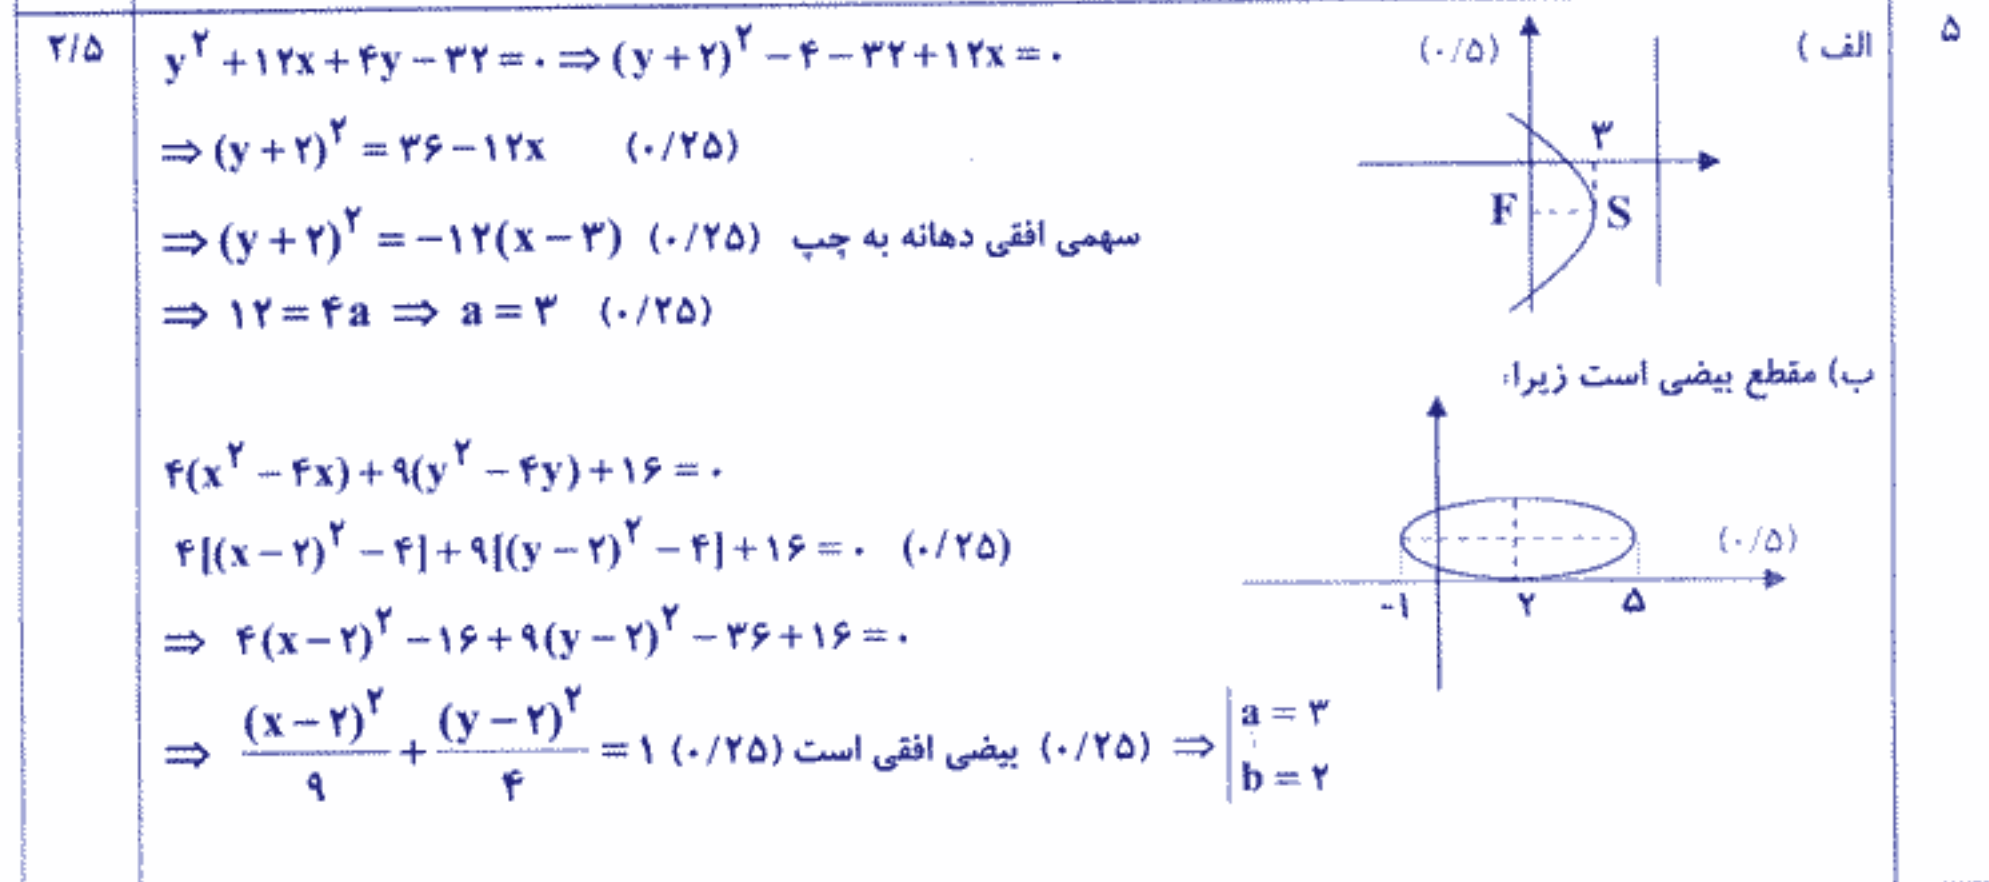 ۵
الف )
(۰/۵)
۳
F
S
y^۲ + ۱۲x + ۴y − ۳۲ = ۰ ⇒ (y + ۲)^۲ − ۴ − ۳۲ + ۱۲x = ۰
۲/۵
⇒ (y + ۲)^۲ = ۳۶ − ۱۲x (۰/۲۵)
⇒ (y + ۲)^۲ = −۱۲(x − ۳) (۰/۲۵) سهمی افقی دهانه به چپ
⇒ ۱۲ = ۴a ⇒ a = ۳ (۰/۲۵)
ب) مقطع بیضی است زیرا:
۴(x^۲ − ۴x) + ۹(y^۲ − ۴y) + ۱۶ = ۰
۴[(x − ۲)^۲ − ۴] + ۹[(y − ۲)^۲ − ۴] + ۱۶ = ۰ (۰/۲۵)
(۰/۵)
-۱ ۲ ۵
⇒ ۴(x − ۲)^۲ − ۱۶ + ۹(y − ۲)^۲ − ۳۶ + ۱۶ = ۰
⇒ (x − ۲)^۲/۹ + (y − ۲)^۲/۴ = ۱ (۰/۲۵) بیضی افقی است (۰/۲۵) ⇒
a = ۳
b = ۲